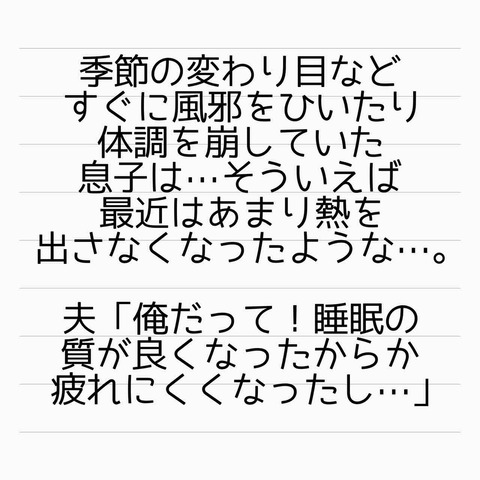 季節の変わり目など
すぐに風邪をひいたり
体調を崩していた
息子は…そういえば
最近はあまり熱を
出さなくなったような…。
夫「俺だって！睡眠の
質が良くなったからか
疲れにくくなったし…」